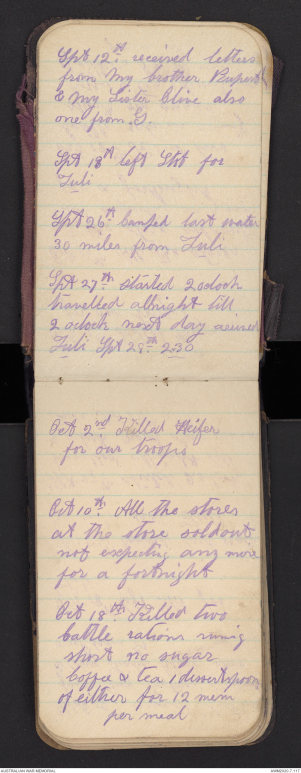 Spt 12th received letters
from my brother Rupert
& my Sister Olive also
one from G.
Spt 18th left Stkt for
Tuli
Spt 26th Camped last water
30 miles from Tuli
Spt 27th started 2 oclock
travelled allnight till
2 oclock next day arrived
Tuli Spt 28th 2.30
Oct 2nd Killed Heifer
for our troops
Oct 10th All the stores
at the store soldout
not expecting any more
for a fortnight
Oct 18th Killed two
Cattle rations runig
short no sugar
Coffee & tea 1 desertspoon
of either for 12 men
per meal
AUSTRALIAN WAR MEMORIAL